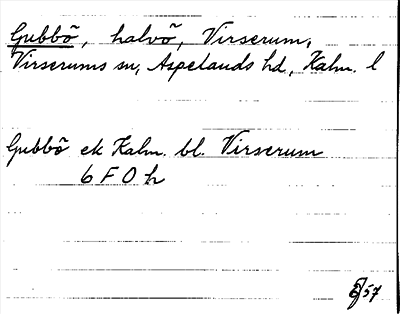 Gubbö, halvö, Virserum,
Virserums sn, Aspelands hd, Kalm. l
Gubbö ek Kalm. bl. Virserum
6 F O h
57